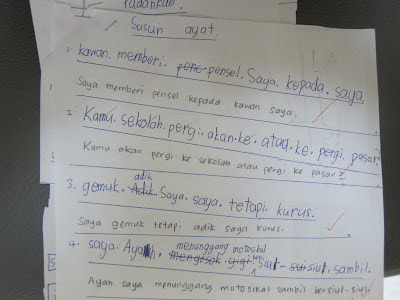 Padankan.
Susun ayat.
1. kawan. memberi. pensel. Saya. kepada. saya
Saya memberi pensel kepada kawan saya.
2. Kamu. sekolah. pergi. akan. ke. atau. ke. pergi. pasar
Kamu akan pergi ke sekolah atau pergi ke pasar?
3. gemuk. adik. Saya. saya. tetapi. kurus.
Saya gemuk tetapi adik saya kurus.
4. saya. Ayah. menunggang motosikal siut-siut. sambil.
Ayah saya menunggang motosikal sambil bersiut-siut